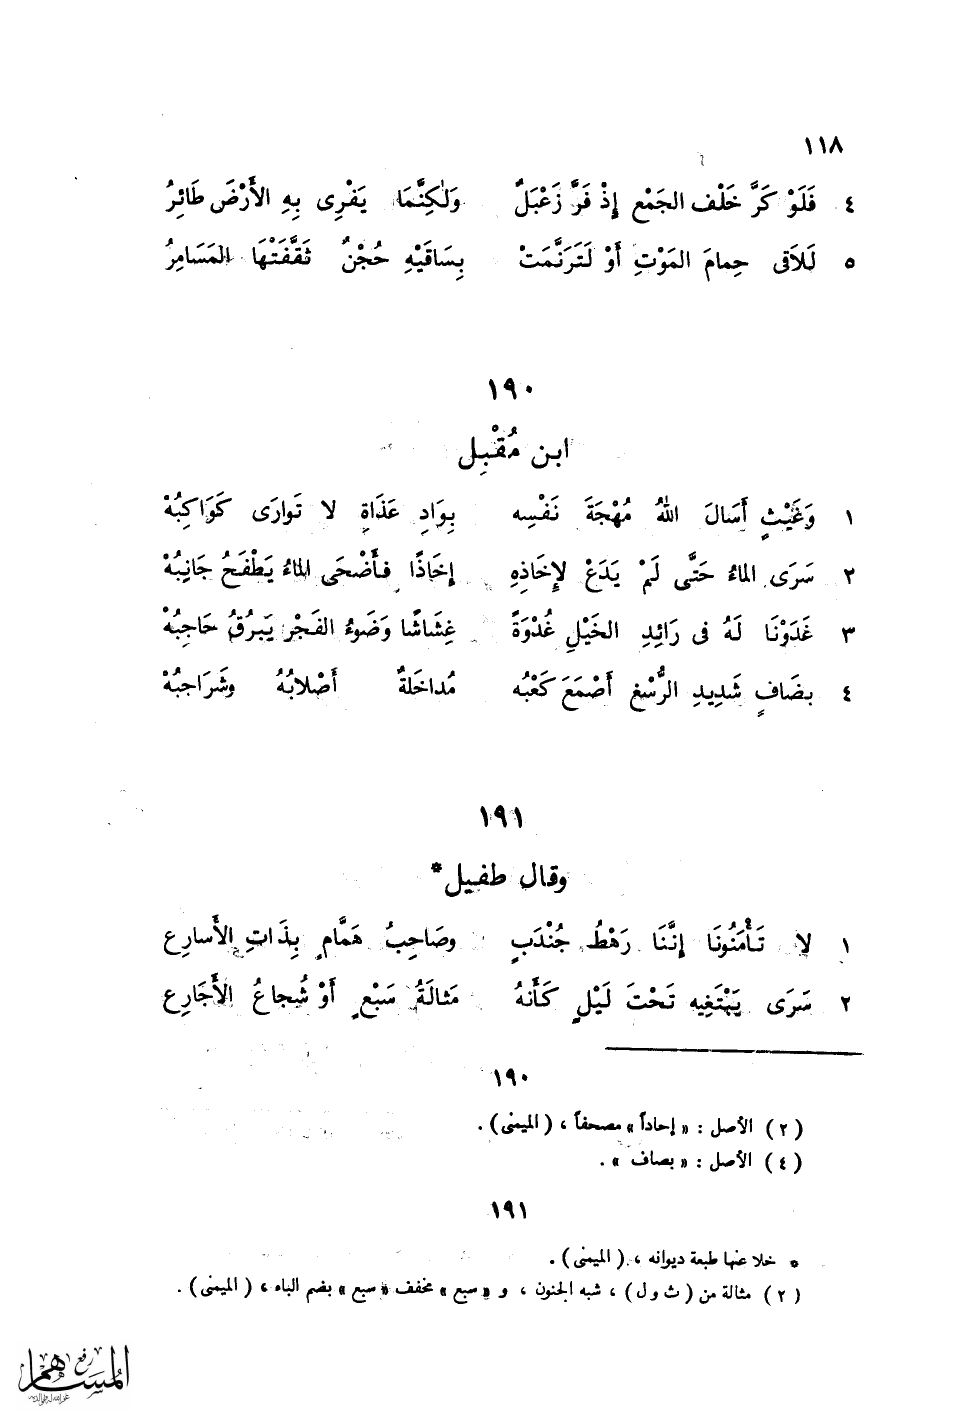 ١١٨
٤ فَلَوْ كَرَّ خَلْف الجَمْع إِذْ فَرَّ زَعْبَلٌ وَلٰكِنَّمَا يَفْرِى بِهِ الأَرْضَ طَائِرُ
٥ لَلاَقى حِمامَ المَوْتِ أَوْ لَتَرَنَّمَتْ بِسَاقَيْهِ حُجْنٌ ثَقَّفَتْهَا المَسَامِرُ
١٩٠
ابن مُقْبِل
١ وَغَيْثٍ أَسَالَ اللهُ مُهْجَةَ نَفْسِه بِوَادِ عَذَاةٍ لا تَوارَى كَوَاكِبُهْ
٢ سَرَى الماءُ حَتَّى لَمْ يَدَعْ لإِخَاذِهِ إِخَاذًا فأَضْحَى الماءُ يَطْفَحُ جَانِبُهْ
٣ غَدَوْنَا لَهُ فى رَائِدِ الخَيْلِ غُدْوَةً غِشَاشًا وَضَوءُ الفَجْر يَبرُقُ حَاجِبُهْ
٤ بضَافٍ شَدِيدِ الرُّسْغ أَصْمَعَ كَعْبُه مُداخَلةٌ أَصْلابُهُ وشَرَاجبُهْ
١٩١
وقال طفيل*
١ لا تَأْمَنُونَا إِنَّنَا رَهْطُ جُنْدَبٍ وصَاحِبُ هَمَّامٍ بِذَاتِ الأَسارِع
٢ سَرَى يَبْتَغِيه تَحْتَ لَيْلٍ كَأَنهُ مَثالَةُ سَبْعٍ أَوْ شُجاعُ الأَجَارِع
١٩٠
(٢) الأصل : « إحاداً » مصحفاً ، (الميمنى) .
(٤) الأصل : « بصاف » .
١٩١
* خلا عنها طبعة ديوانه ، (الميمنى) .
(٢) مثالة من (ث و ل) ، شبه الجنون ، و « سبع » مخفف « سبع » بضم الباء ، (الميمنى) .
رفع
المساهم